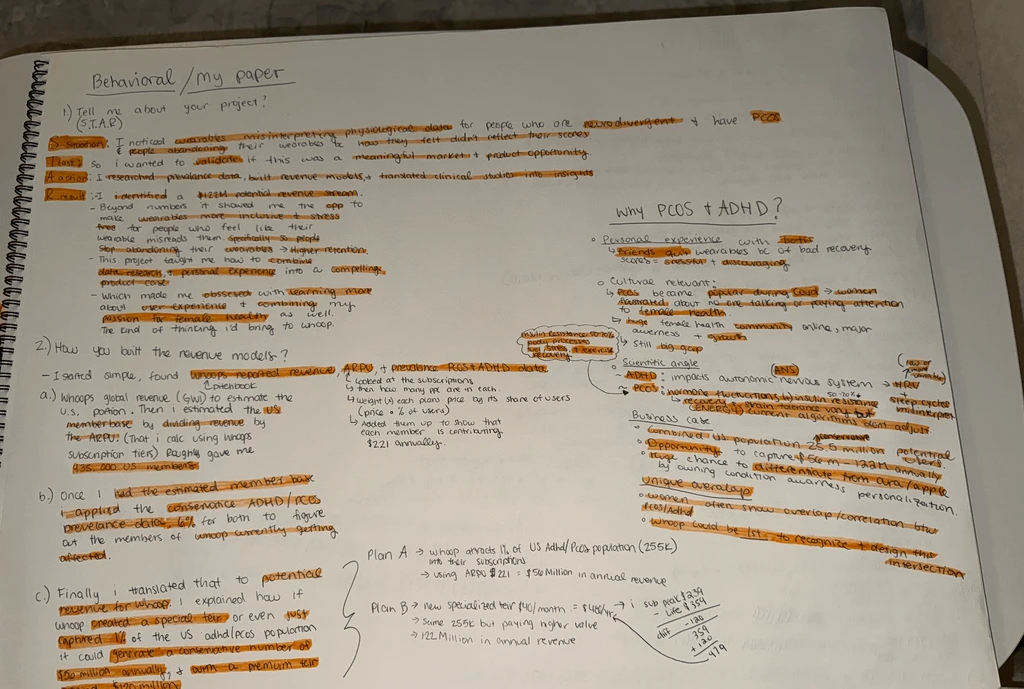 Behavioral / My paper
1.) Tell me about your project?
(S.T.A.R)
Situation: I noticed wearables misinterpreting physiological data for people who are neurodivergent & have PCOS
& people abandoning their wearables bc how they felt didn't reflect their scores
Task: So i wanted to validate if this was a meaningful market + product opportunity.
Action: I researched prevalence data, built revenue models, + translated clinical studies into insights
Result: I identified a $122M potential revenue stream.
- Beyond numbers it showed me the opp to
make wearables more inclusive & stress
free for people who feel like their
wearable misreads them. Specifically so people
stop abandoning their wearables → Higher retention.
- This project taught me how to combine
data research, + personal experience into a compelling
product case.
- Which made me obssesed with learning more
about user experience + combining my
passion for female health as well.
The kind of thinking i'd bring to whoop.
2.) How you built the revenue models?
- I started simple, found whoops reported revenue, ARPU, + prevalance PCOS + ADHD data
Pitchbook
↳ Looked at the subscriptions
↳ then how many ppl are in each.
↳ Weight(s) each plans price by its share of users
(price • % of users)
↳ Added them up to show that
each member is contributing
$221 annually.
a.) Whoops global revenue (GWI) to estimate the
U.S. portion. Then i estimated the US
memberbase by dividing revenue by
the ARPU. (That i calc using whoops
subscription tiers) Roughly gave me
435,000 US members
b.) Once i had the estimated member base
i applied the conservative ADHD/PCOS
prevelance datas, 6% for both to figure
out the members of whoop currently getting
affected.
c.) Finally i translated that to potential
revenue for whoop. I explained how if
whoop created a special teir or even just
captured 1% of the US adhd/pcos population
it could generate a conservative number of
$56 million annually, + with a premium teir
$120 million
Plan A → whoop attracts 1% of US Adhd/Pcos population (255K)
into their subscriptions
→ using ARPU $221 = $56 Million in annual revenue
Plan B → new specialized teir $40/month = $480/yr
→ Same 255k but paying higher value
→ 122 Million in annual revenue
→ i sub peak $239
- Life $359
diff -120
359
+120
479
Why PCOS + ADHD?
◦ Personal experience with both
↳ Friends quit wearables bc of bad recovery
scores = stressful + discouraging
◦ Cultural relevant:
↳ PCOS became popular during Covid → women
frustrated about no one talking or paying attention
to female health
↳ huge female health community online, major
awerness + growth
↳ Still big gap
Insulin Resistance 50-70%
body processes
fuel, stress, & exercise
recovery
Scientific angle
- ADHD: impacts autonomic nervous system → HRV
(ANS)
(low or variable)
~ PCOS: hormone fluctuations + insulin resistance + sleep cycles
50-70%
↳ recovery + strain tolerance vary but misinterpret
(ENERGY) current algorithms don't adjust.
Business case
◦ Combined US population 25.5 million potential users
conservative
◦ Opportunity to capture $56m - 122M annually
◦ Huge chance to differentiate from oura/apple
by owning condition awarness personalization.
Unique overlap
◦ Women often show overlap/correlation btw
PCOS/Adhd
◦ Whoop could be 1st to recognize + design this
intersection